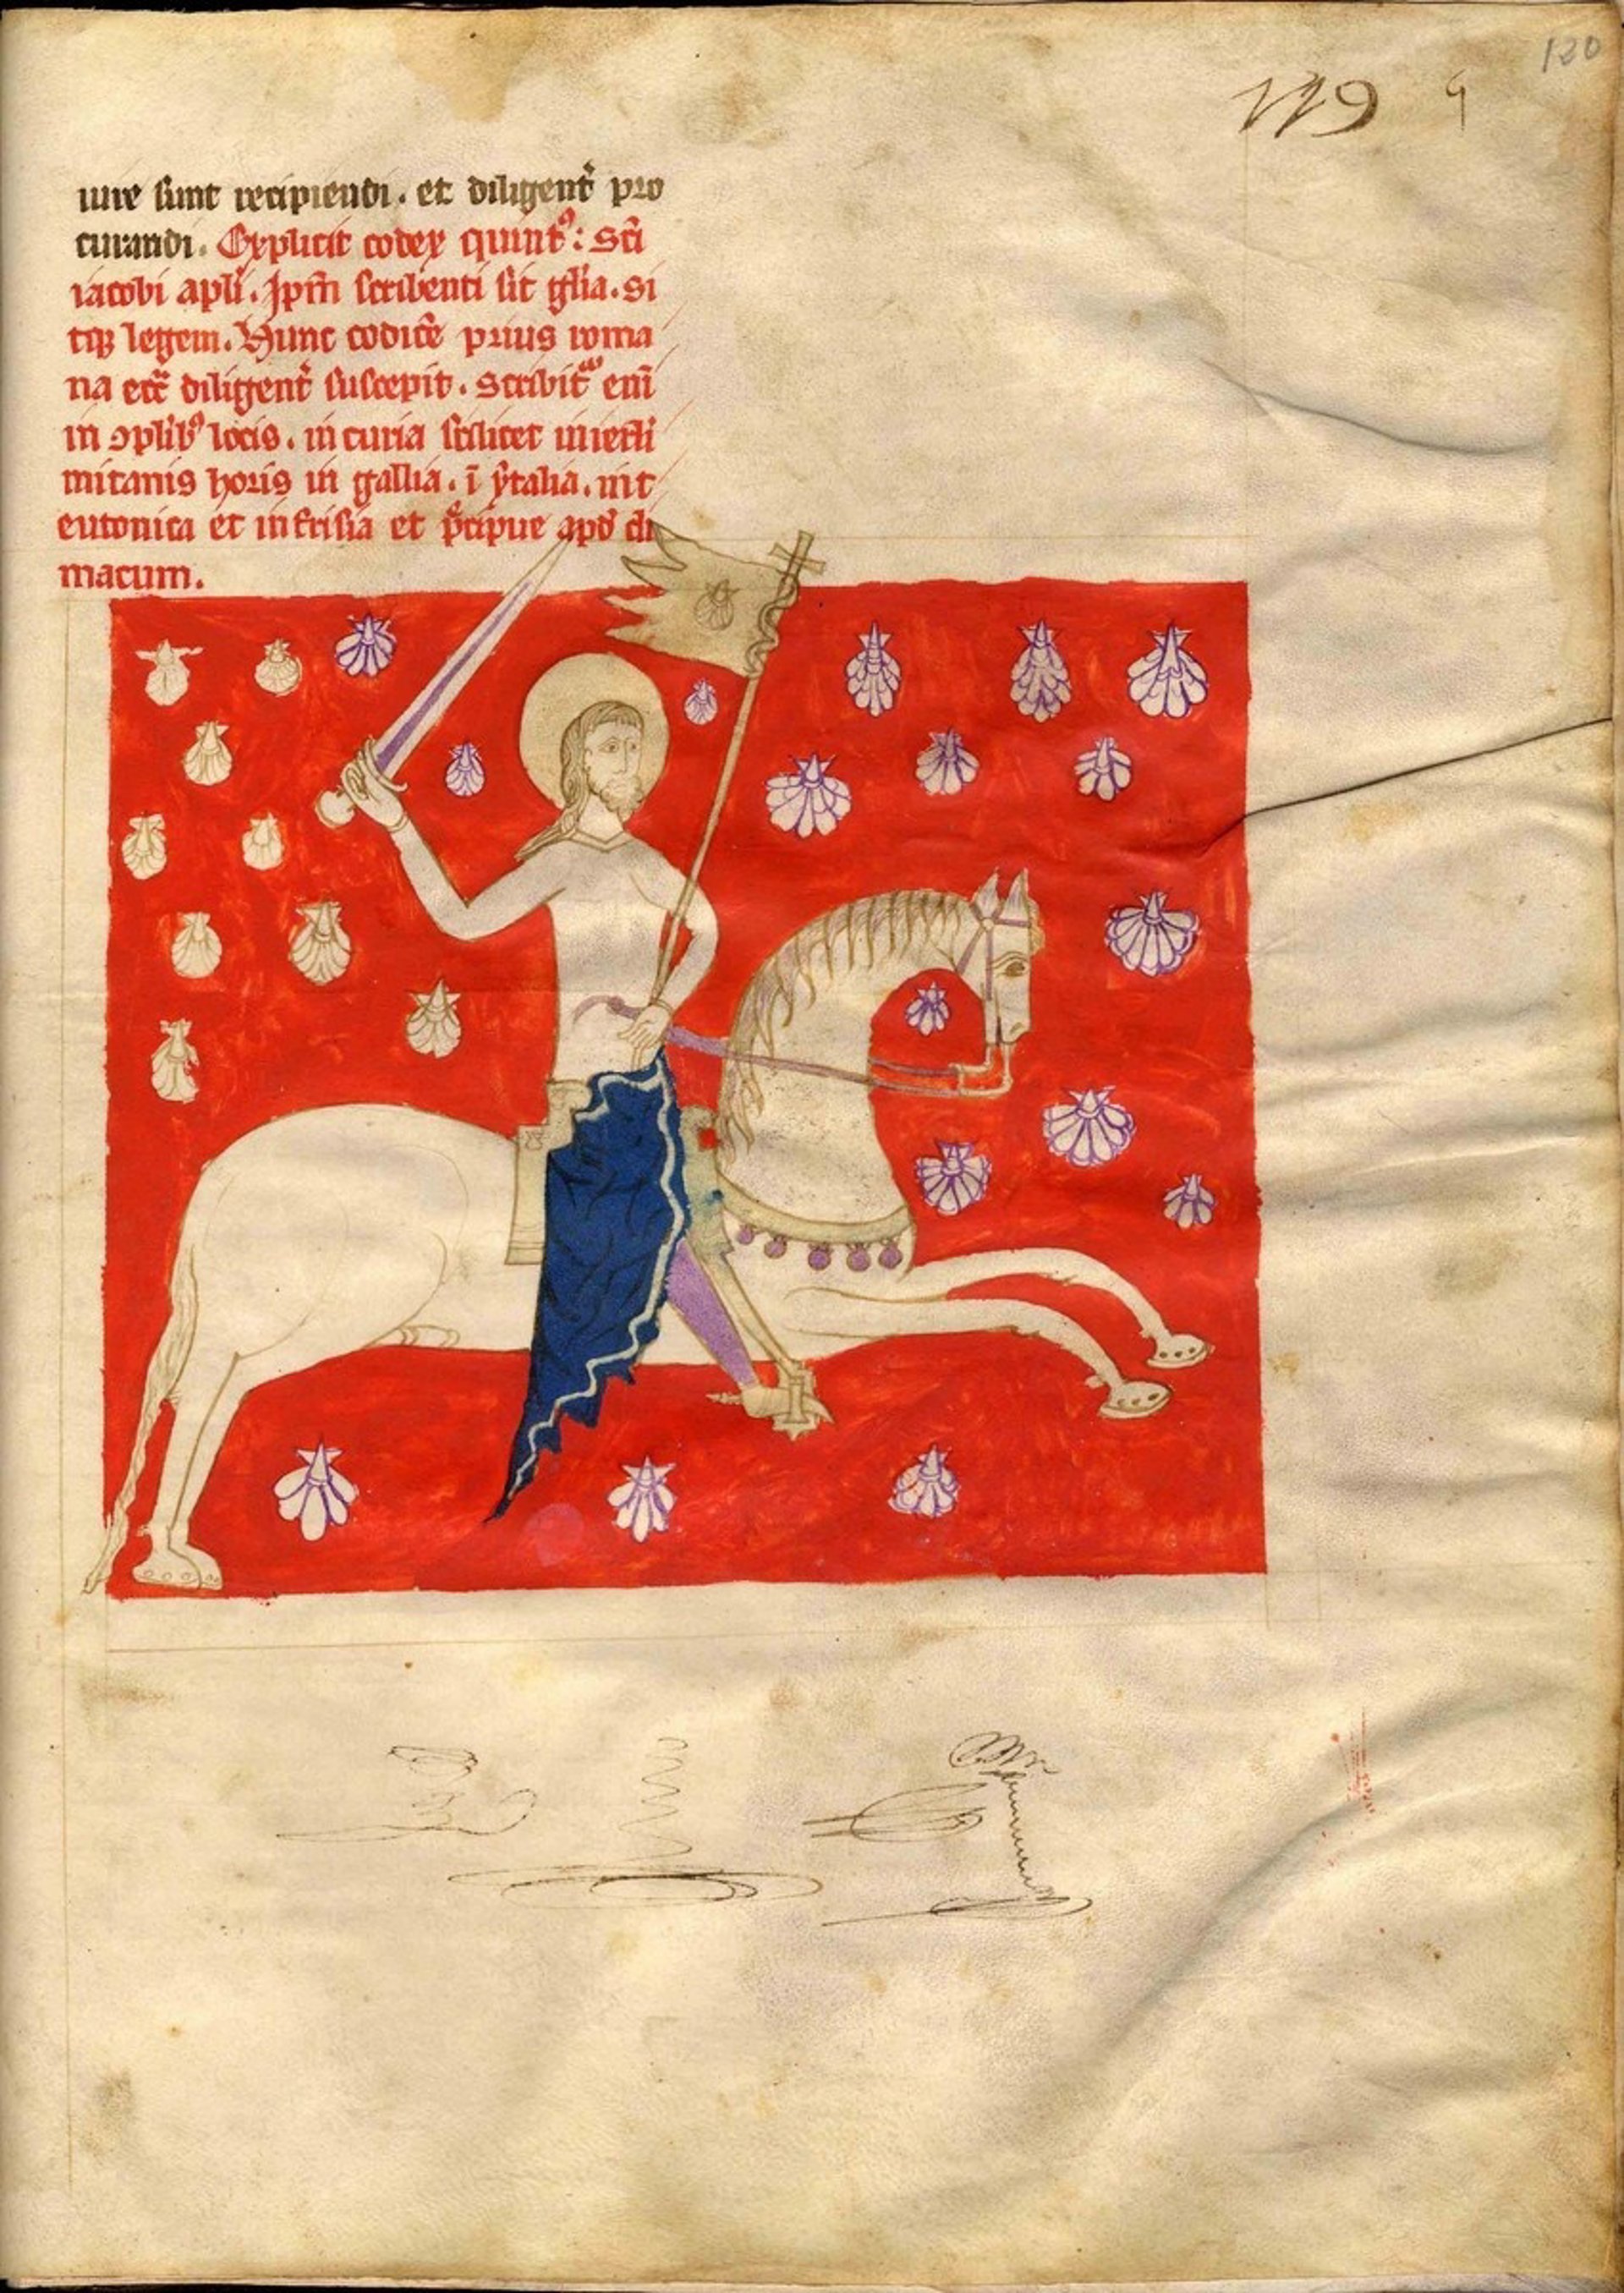 120
119 9
iure sunt recipiendi. et diligent᷑ pro
curandi. Explicit codex quintꝰ: Sc̄i
iacobi apl̄i. Ip̄m scribenti sit gl̄ia. si
tqꝫ legem. Hunc codicē prius roma
na ecc̄ diligent᷑ suscepit. Scribit᷑ enī
in ꝯplibꝰ locis. in curia scilicet inierl̄i
mitanis horis in gallia. ī ytalia. nit
eutonica et in frisia et p̄cipue apd̄ di
macum.